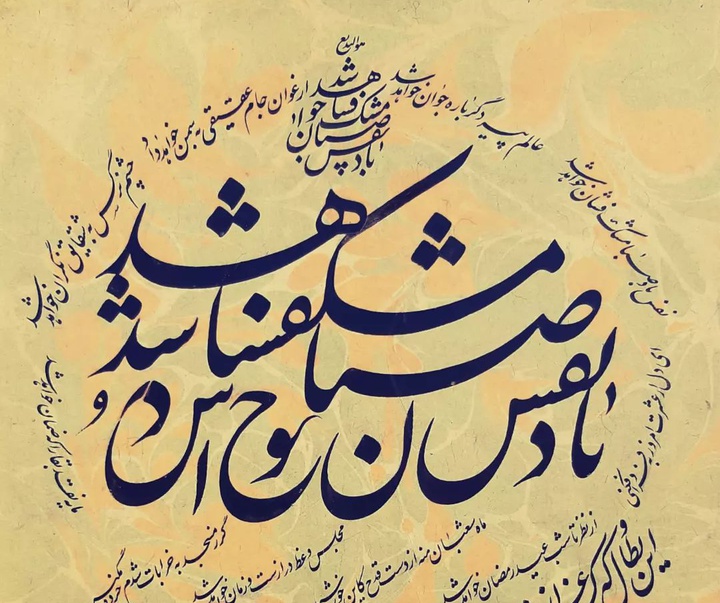 هوالبدیع
نفس باد صبا مشک فشان خواهد شد
نفس باد صبا مشک فشان خواهد شد
نفس باد صبا مشک فشان خواهد شد
عالم پیر دگرباره جوان خواهد شد
ارغوان جام عقیقی به سمن خواهد داد
چشم نرگس به شقایق نگران خواهد شد
ای دل ار عشرت امروز به فردا فکنی
مایه نقد بقا را که ضمان خواهد شد
ماه شعبان منه از دست قدح کاین
از نظر تا شب عید رمضان خواهد شد
گر ز مسجد به خرابات شدم خرده مگیر
مجلس وعظ دراز است و زمان خواهد شد
این تطاول که